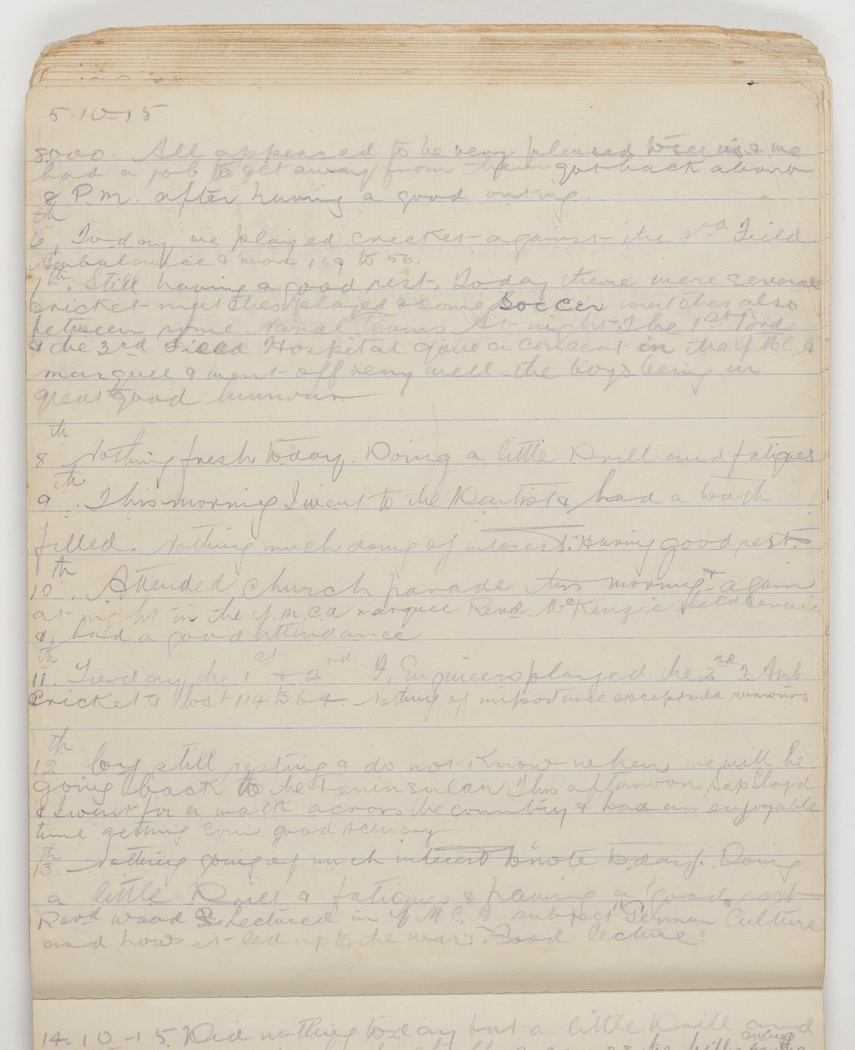 5-10-15
8000. All appeared to be very pleased to see us & we
had a job to get away from them got back about
8 P.m. after having a good outing.
6th, Today we played cricket against the 3rd Field
Ambulance & won 119 to 56.
7th. Still having a good rest. Today there were several
cricket matches played & some Soccer matches also
between some Naval Teams At night the 1st Bod
& the 3rd Field Hospital gave a concert in the Y.M.C.A
marquee & went off very well the boys being in
great good humour
8th. Nothing fresh today. Doing a little Drill and fatigues
9th. This morning I went to the Dentist & had a tooth
filled. Nothing much doing of interest. Having good rest.
10th. Attended church parade this morning & again
at night in the Y.M.C.A marquee. Revd McKenzie held service
& had a good attendance
11th. Today the 1st & 2nd F. Engineers played the 2nd F. Amb
Cricket & lost 114 to 64. Nothing of importance except wild rumours.
12th. Coy still resting & do not know when we will be
going back to the Peninsular This afternoon Sap Lloyd
& I went for a walk across the country & had an enjoyable
time getting some good scenery
13th. Nothing going of much interest to note today. Doing
a little Drill & fatigues & having a "good rest"
Revd Wood Lectured in Y.M.C.A. subject "German Culture
and how it led up to the war". Good lecture.
14-10-15. Did nothing today but a little Drill and